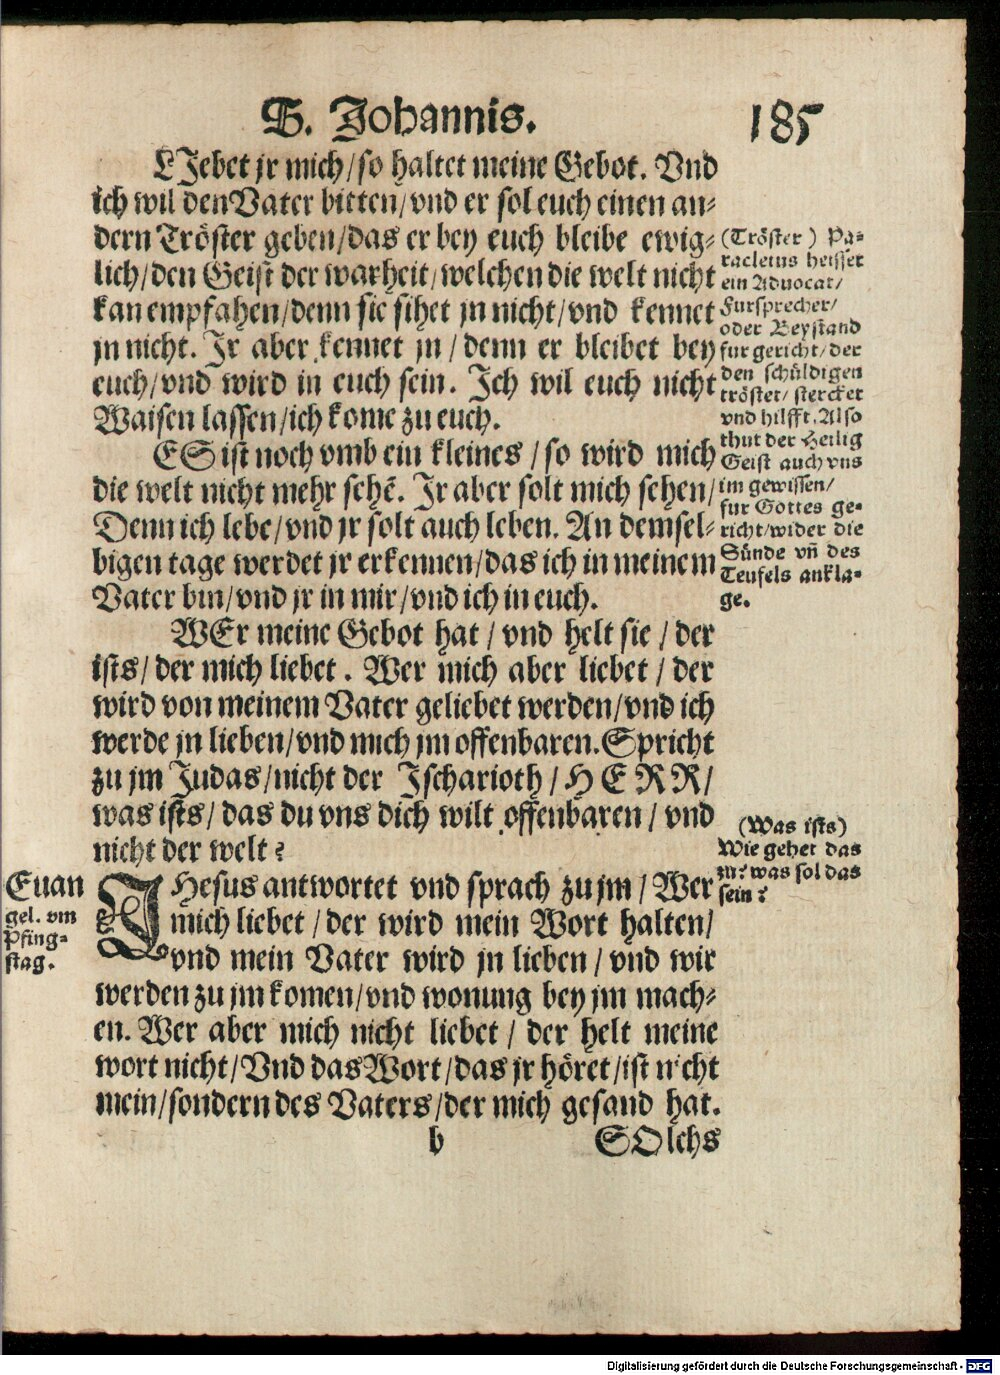 S. Johannis.
185
LJebet jr mich/so haltet meine Gebot. Vnd
ich wil den Vater bitten/vnd er sol euch einen an⸗
dern Tröster geben/das er bey euch bleibe ewig⸗
lich/den Geist der warheit/welchen die welt nicht
kan empfahen/denn sie sihet jn nicht/vnd kennet
jn nicht. Jr aber kennet jn/denn er bleibet bey
euch/vnd wird in euch sein. Jch wil euch nicht
Waisen lassen/ich kome zu euch.
ES ist noch vmb ein kleines/so wird mich
die welt nicht mehr sehē. Jr aber solt mich sehen/
Denn ich lebe/vnd jr solt auch leben. An demsel⸗
bigen tage werdet jr erkennen/das ich in meinem
Vater bin/vnd jr in mir/vnd ich in euch.
WEr meine Gebot hat/vnd helt sie/der
ists/der mich liebet. Wer mich aber liebet/der
wird von meinem Vater geliebet werden/vnd ich
werde jn lieben/vnd mich jm offenbaren. Spricht
zu jm Judas/nicht der Jscharioth/HERR/
was ists/das du vns dich wilt offenbaren/vnd
nicht der welt?
JHesus antwortet vnd sprach zu jm/Wer
mich liebet/der wird mein Wort halten/
vnd mein Vater wird jn lieben/vnd wir
werden zu jm komen/vnd wonung bey jm mach⸗
en. Wer aber mich nicht liebet/der helt meine
wort nicht/Vnd das Wort/das jr höret/ist nicht
mein/sondern des Vaters/der mich gesand hat.
b
SOlchs
(Tröster) Pa⸗
racletus heisset
ein Aduocat/
Fursprecher/
oder Beystand
fur gericht/der
den schüldigen
tröstet/stercket
vnd hilfft. Also
thut der Heilig
Geist auch vns
im gewissen/
fur Gottes ge⸗
richt/wider die
Sünde vñ des
Teufels ankla⸗
ge.
(Was ists)
Wie gehet das
zu? was sol das
sein?
Euan
gel. vm
Pfing⸗
stag.
Digitalisierung gefördert durch die Deutsche Forschungsgemeinschaft - DFG